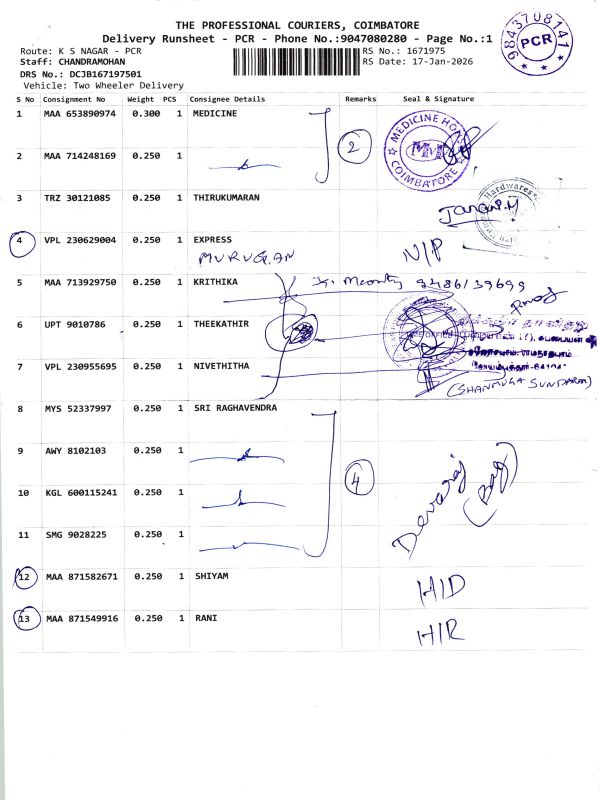 THE PROFESSIONAL COURIERS, COIMBATORE
Delivery Runsheet - PCR - Phone No.:9047080280 - Page No.:1
Route: K S NAGAR - PCR
RS No.: 1671975
Staff: CHANDRAMOHAN
RS Date: 17-Jan-2026
DRS No.: DCJB167197501
Vehicle: Two Wheeler Delivery
9843708141
PCR
S No Consignment No Weight PCS Consignee Details Remarks Seal & Signature
1 MAA 653890974 0.300 1 MEDICINE
2
MEDICINE HOME
MM
COIMBATORE
2 MAA 714248169 0.250 1
3 TRZ 30121085 0.250 1 THIRUKUMARAN
Hardwares
4 VPL 230629004 0.250 1 EXPRESS
MURUGAN N/P
5 MAA 713929750 0.250 1 KRITHIKA
6 UPT 9010786 0.250 1 THEEKATHIR
7 VPL 230955695 0.250 1 NIVETHITHA
(SHANMUGA SUNDARAM)
8 MYS 52337997 0.250 1 SRI RAGHAVENDRA
9 AWY 8102103 0.250 1
4
Devaraj
10 KGL 600115241 0.250 1
11 SMG 9028225 0.250 1
12 MAA 871582671 0.250 1 SHIYAM
H/D
13 MAA 871549916 0.250 1 RANI
H/R